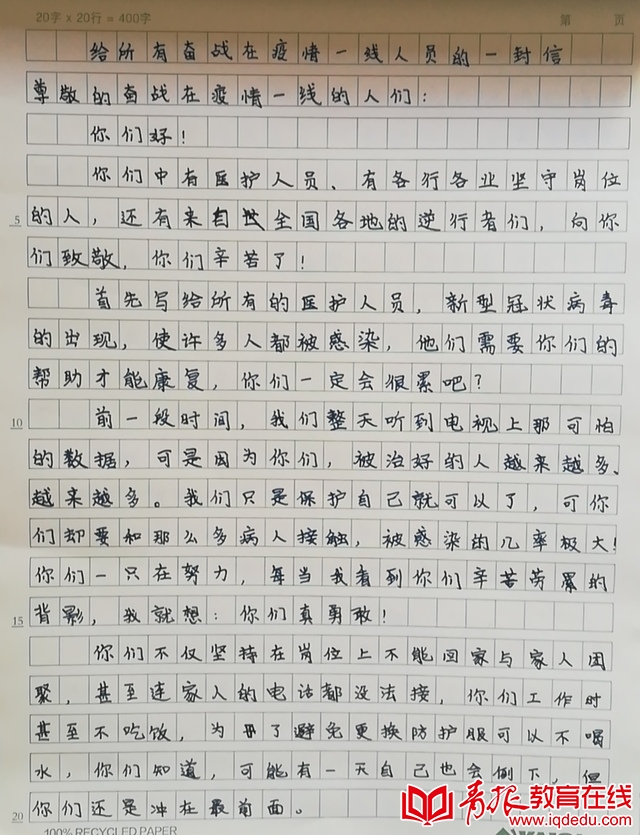 20字 x 20行 = 400字 第 页
给所有奋战在疫情一线人员的一封信
尊敬的奋战在疫情一线的人们：
你们好！
你们中有医护人员、有各行各业坚守岗位
5 的人，还有来自世全国各地的逆行者们，向你
们致敬，你们辛苦了！
首先写给所有的医护人员，新型冠状病毒
的出现，使许多人都被感染，他们需要你们的
帮助才能康复，你们一定会很累吧？
10 前一段时间，我们整天听到电视上那可怕
的数据，可是因为你们，被治好的人越来越多、
越来越多。我们只是保护自己就可以了，可你
们却要和那么多病人接触，被感染的几率极大！
你们一只在努力，每当我看到你们辛苦劳累的
15 背影，我就想：你们真勇敢！
你们不仅坚持在岗位上不能回家与家人团
聚，甚至连家人的电话都没法接，你们工作时
甚至不吃饭，为了避免更换防护服可以不喝
水，你们知道，可能有一天自己也会倒下，但
20 你们还是冲在最前面。
100% RECYCLED PAPER
青报教育在线
www.iqdedu.com